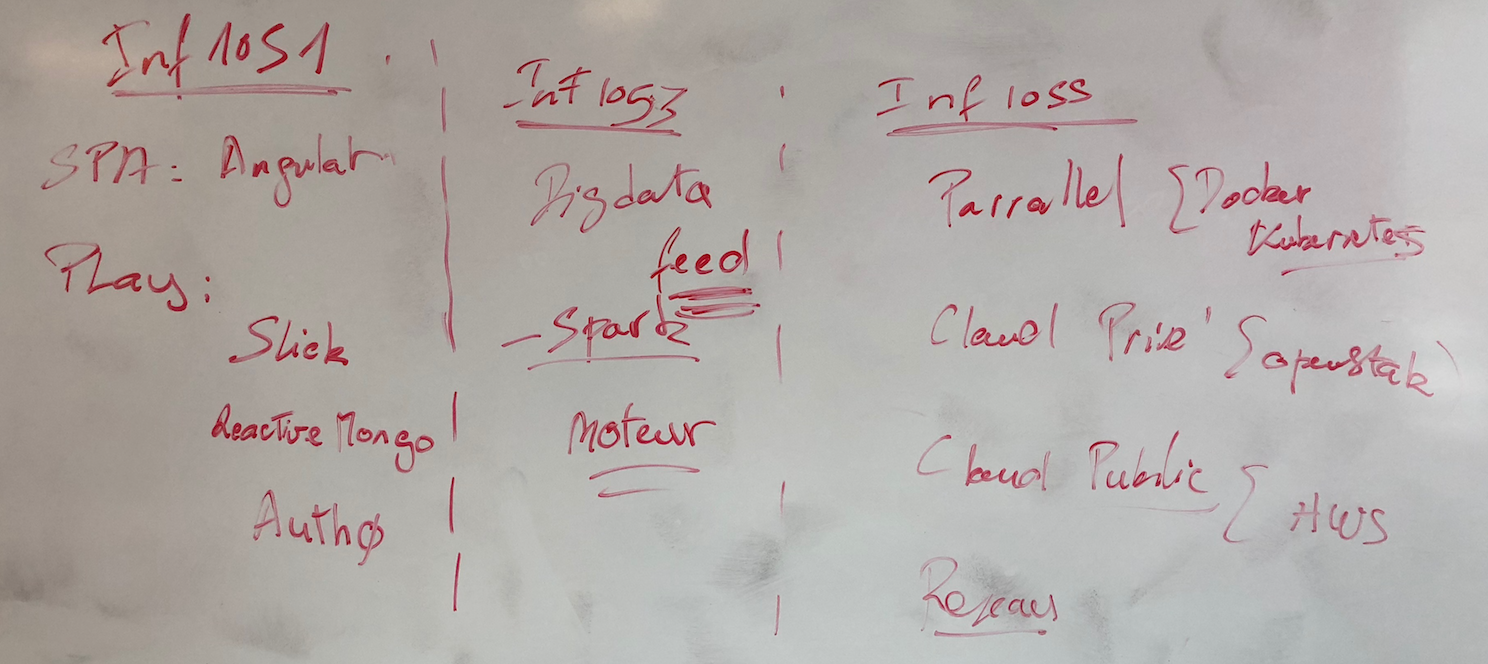 Inf 1051
SPA: Angular
Play:
Slick
Reactive Mongo
Auth0
Inf 1053
Bigdata
feed
- Spark
Moteur
Inf 1055
Parrallel { Docker
Kubernetes
Claud Privé { openstak
Claud Public { AWS
Reseau